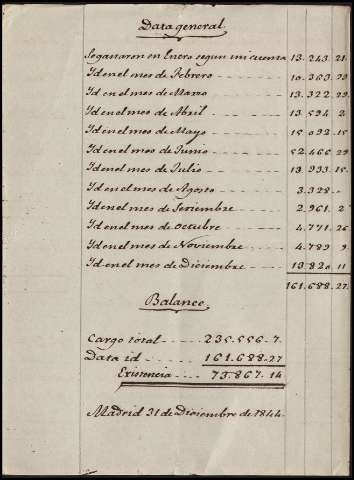 Data general
Se gastaron en Enero segun mi cuenta 13.243.22
Yd en el mes de Febrero - - - - 10.363.29
Yd en el mes de Marzo - - - - 13.322.29
Yd en el mes de Abril - - - - 13.594 2
Yd en el mes de Mayo - - - - 15.092.15
Yd en el mes de Junio - - - - 52.466.29
Yd en el mes de Julio - - - - 13.933.15
Yd en el mes de Agosto - - - - 3.328.-
Yd en el mes de Setiembre - - - - 2.961.2
Yd en el mes de Octubre - - - - 4.771.26
Yd en el mes de Noviembre - - - - 4.789 9
Yd en el mes de Diciembre - - - - 13.820.11
161.688.27
Balance
Cargo total - - - - 235.556.7
Data id - - - - 161.688.27
Existencia - - - - 73.867.14
Madrid 31 de Diciembre de 1844.